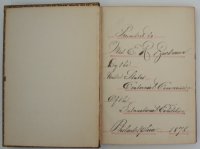 Presented to
Miss E. R.
By the
United States
Centennial Commission
Of the
International Exhibition
Philadelphia 1876.